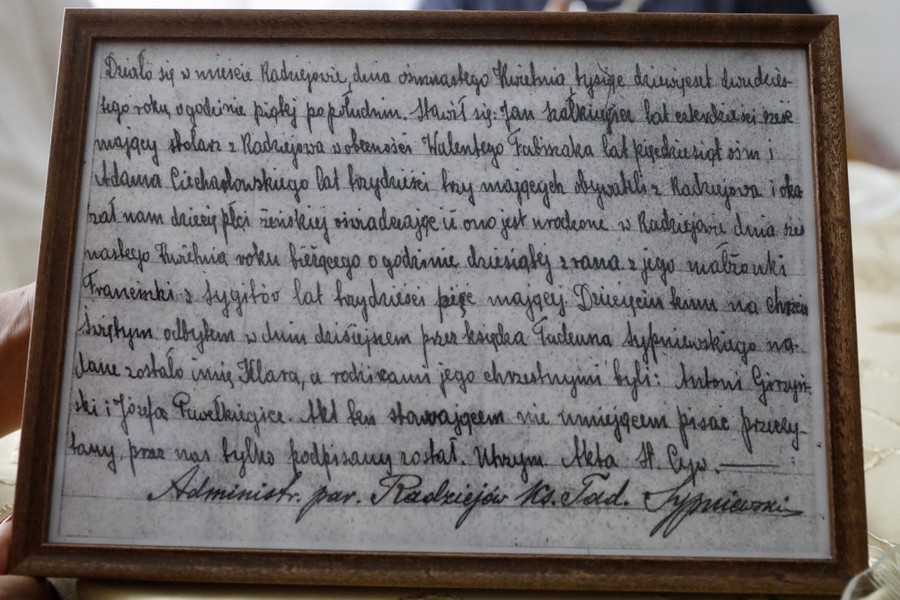 Działo się w mieście Radziejowie, dnia ośmnastego Kwietnia tysiąc dziewięćset dwudzies-
tego roku o godzinie piątej po południu. Stawił się: Jan lat czterdzieści sześć
mający stolarz z Radziejowa w obecności Walentego Fabiszaka lat pięćdziesiąt ośm i
Adama Ciechanowskiego lat trzydzieści trzy mających obywateli z Radziejowa i oka
zał nam dziecię płci żeńskiej oświadczając iż ono jest urodzone w Radziejowie dnia szes
nastego Kwietnia roku bieżącego o godzinie dziesiątej z rana z jego małżonki
Franciszki z Sygitów lat trzydzieści pięć mającej. Dziecięciu temu na chrzcie
świętym odbytem w dniu dzisiejszem przez księdza Tadeusza Sypniewskiego na-
dane zostało imię Klara, a rodzicami jego chrzestnymi byli: Antoni Gorzyń-
ski i Józefa Akt ten stawającem nie umiejącem pisać przeczy-
tany, przez nas tylko podpisany został. Utrzym. Akta St. Cyw.
Administr. par. Radziejów Ks. Tad. Sypniewski